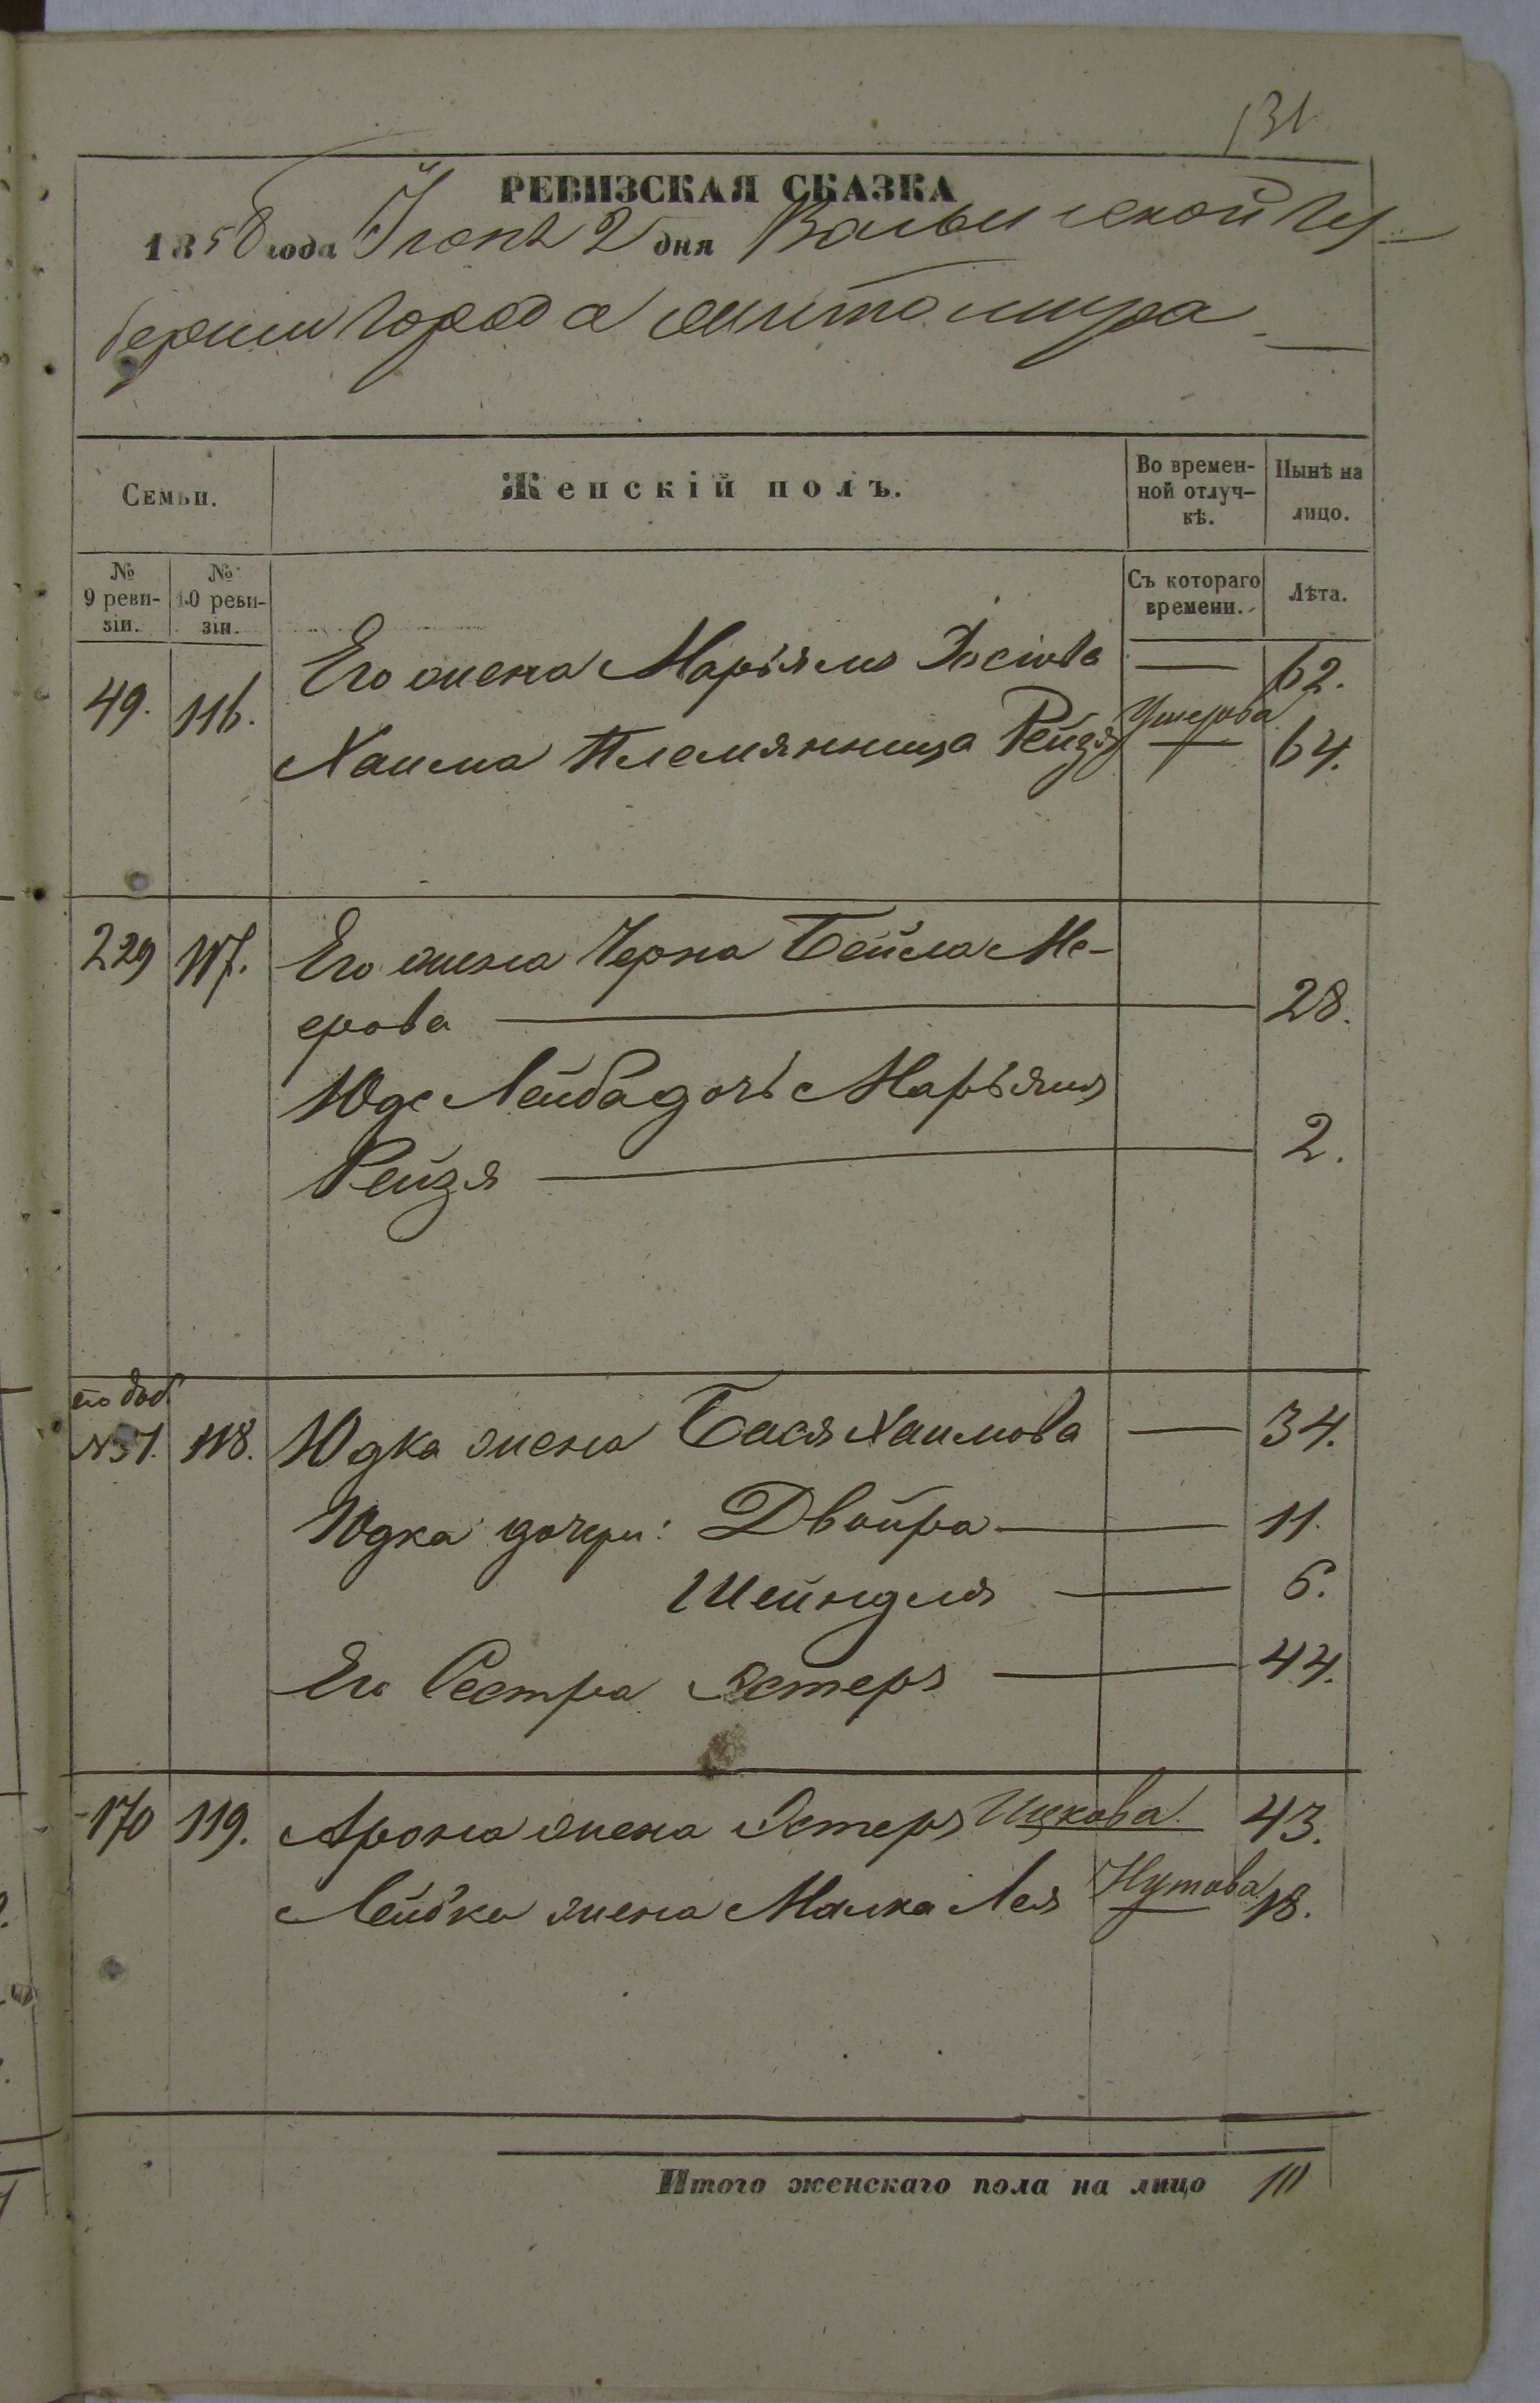 131
РЕВИЗСКАЯ СКАЗКА
1858 года Іюня 2 дня Волынской Гу-
берніи Города Житомира
Семьи.
Женскій полъ.
Во времен-
ной отлуч-
кѣ.
Нынѣ на
лицо.
№
9 реви-
зіи.
№
10 реви-
зіи.
Съ котораго
времени.
Лѣта.
49. 116. Его жена Марьямъ Іосіова — 62.
Хаима Племянница Рейзя Ушерова — 64.
229 117. Его жена Черна Бейла Ме-
ерова — 28.
Юде Лейба дочь Марьямъ
Рейзя — 2.
по доб.
№ 51. 118. Юдка жена Бася Хаимова — 34.
Юдка дочери: Двойра — 11.
Шейндля — 6.
Его Сестра Эстеръ — 44.
170 119. Арона жена Эстеръ Ицкова 43.
Лейбка жена Малка Лея Нутова — 18.
Итого женскаго пола на лицо 10